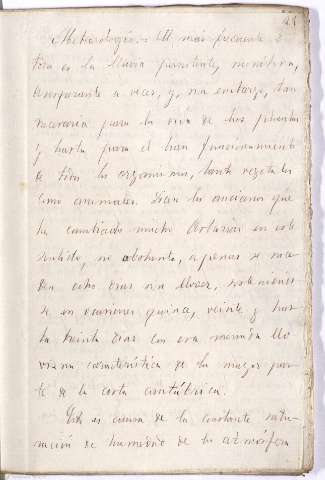 Meteorología.- El más frecuente
es la lluvia persistente, monótona,
a veces, y, sin embargo, tan
necesaria para la vida de las plantas
y hasta para el buen funcionamiento
de todos los organismos, tanto vegetales
como animales. Dicen los ancianos que
ha cambiado mucho Asturias en este
sentido, no obstante, apenas se
ocho días sin llover,
se en ocasiones quince, veinte y has
ta treinta días con esa menuda llo
vizna característica de la mayor par
te de la costa cantábrica.
Esto es causa de la constante satu-
ración de humedad de la atmósfera